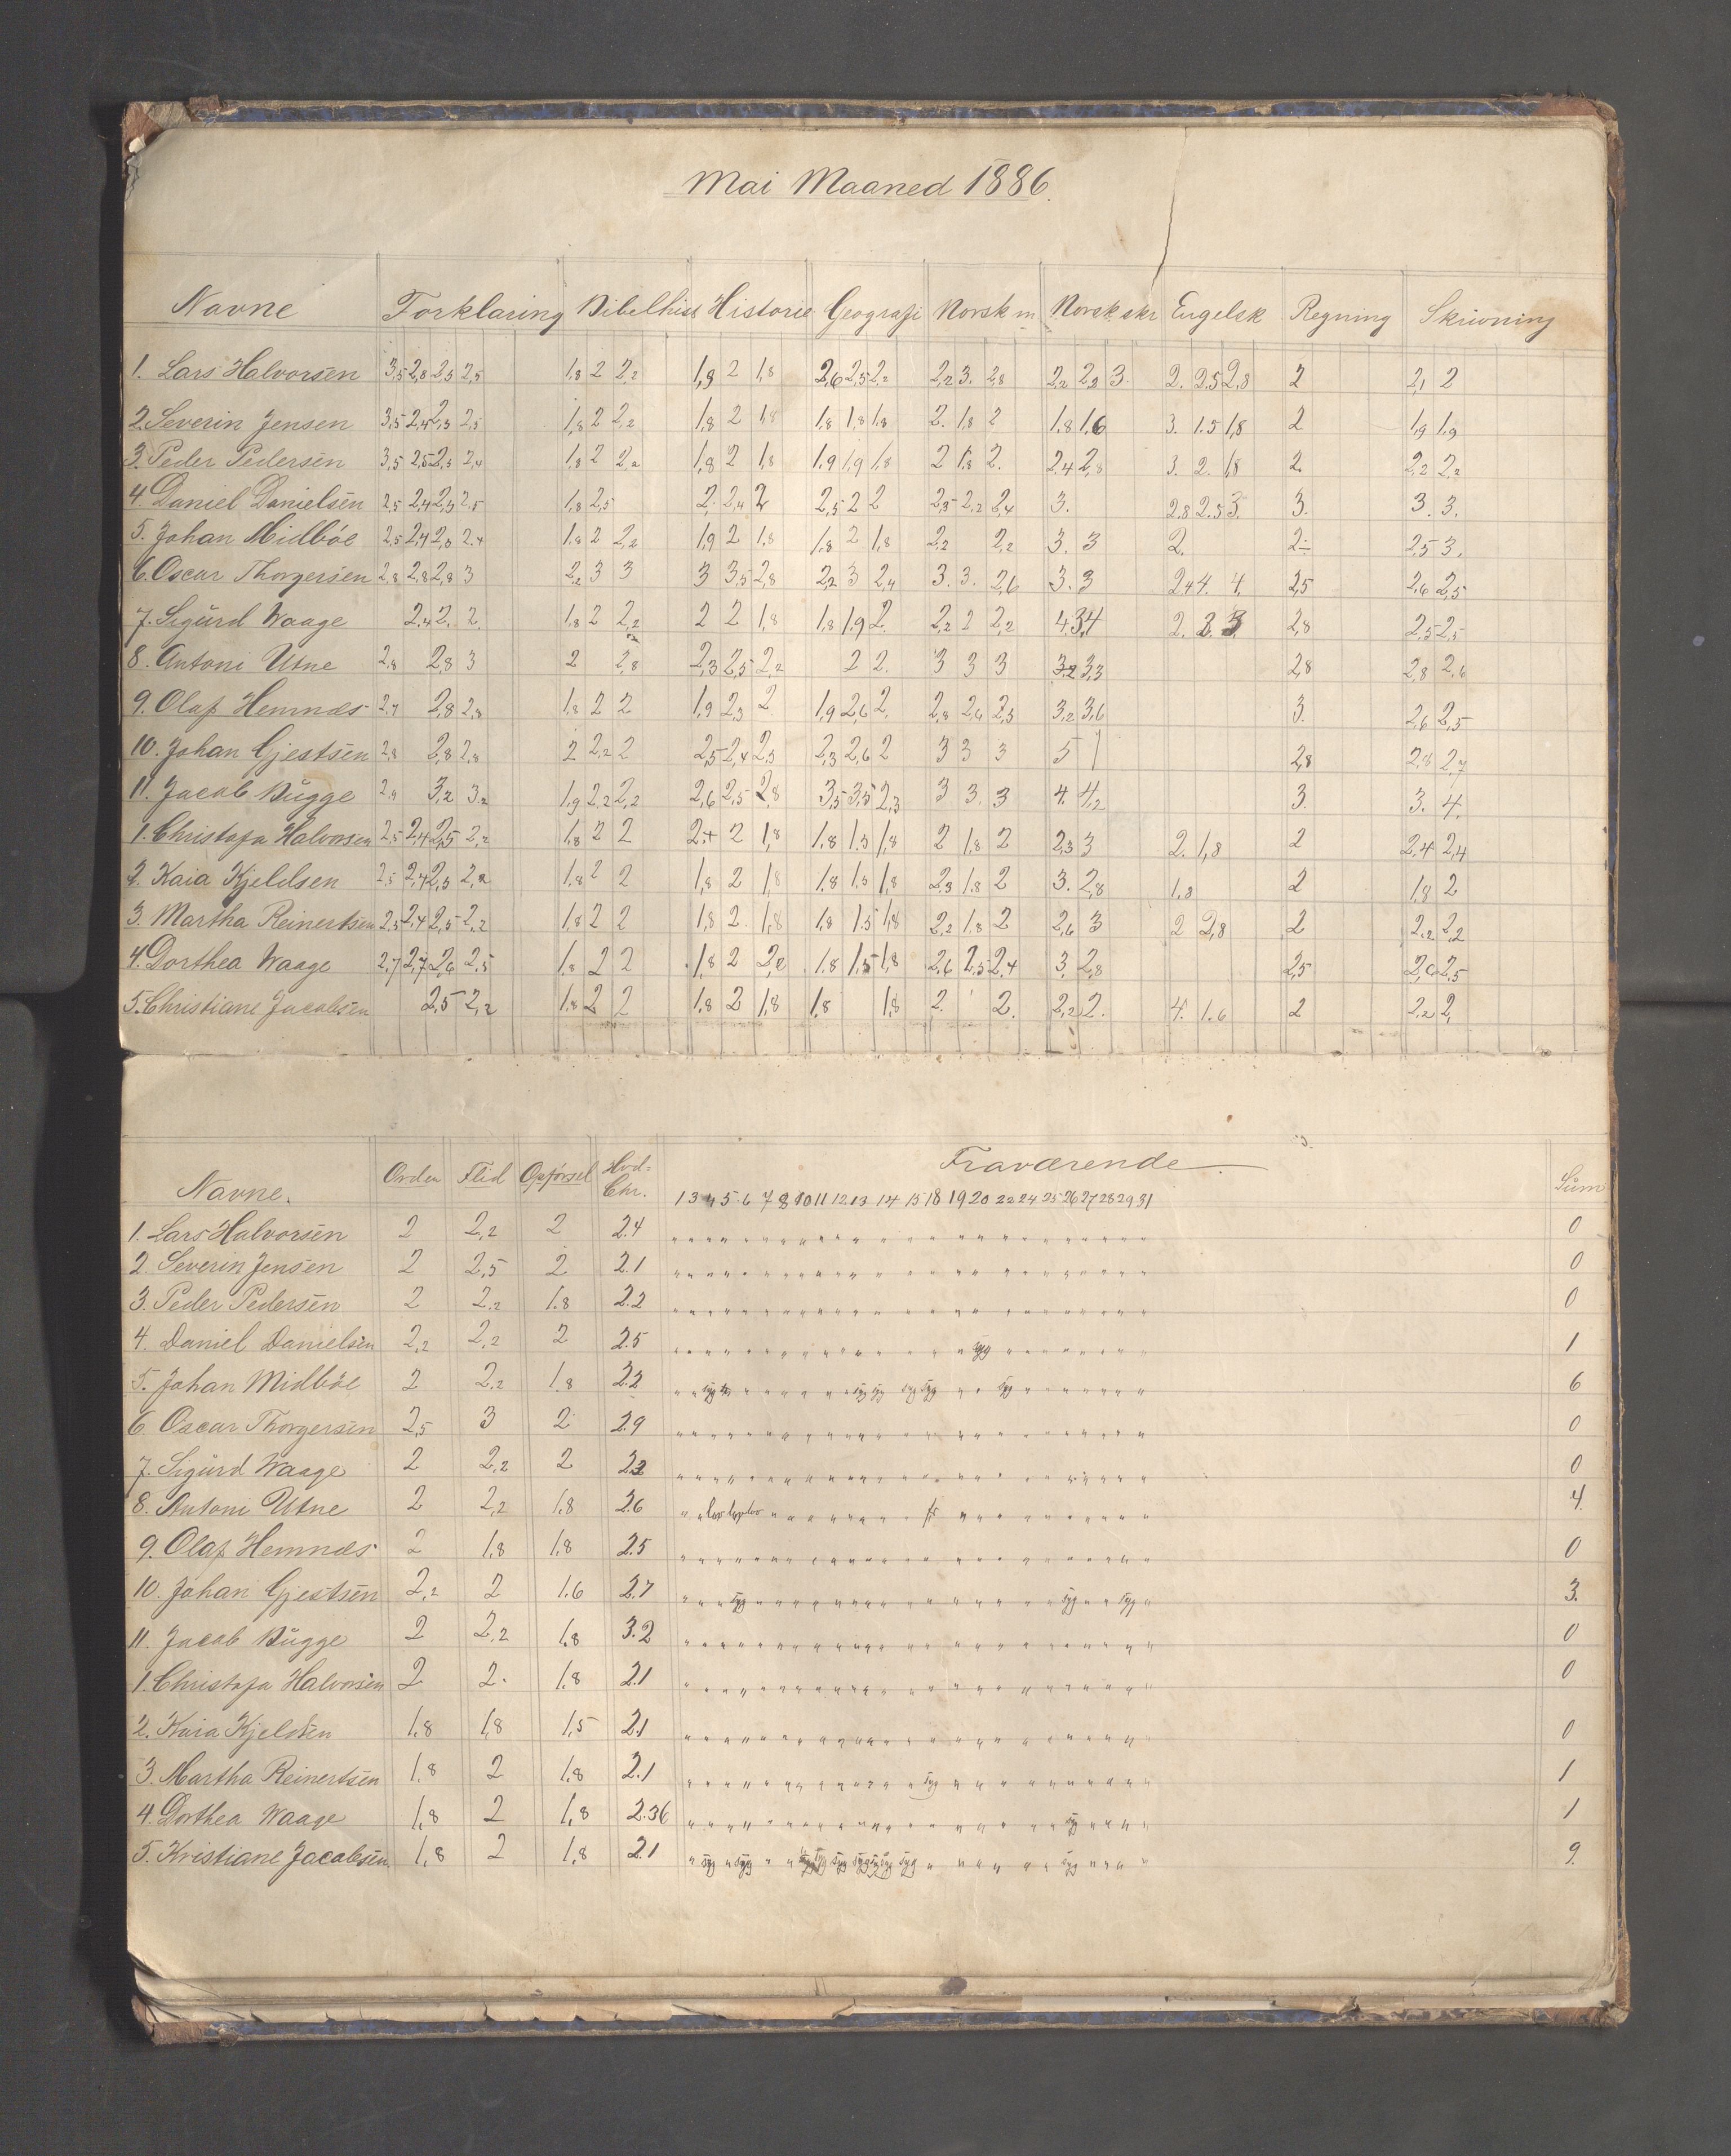 Mai Maaned 1886.
Navne Forklaring Bibelhist Historie Geografi Norsk m Norsk skr Engelsk Regning Skrivning
1. Lars Halvorsen 3,5 2,8 2,3 2,5 1,8 2 2,2 1,9 2 1,8 2,6 2,5 2,2 2,2 3. 2,8 2,2 2,8 3. 2. 2.5 2,8 2 2,1 2
2. Severin Jensen 3,5 2,4 2,3 2,5 1,8 2 2,2 1,8 2 1,8 1,8 1,8 1,8 2. 1,8 2 1.8 1.6 3. 1.5 1,8 2 1,9 1,9
3. Peder Pedersen 3,5 2,5 2,3 2,4 1,8 2 2,2 1,8 2 1,8 1.9 1,9 1,8 2 1,8 2. 2.4 2,8 3. 2. 1,8 2. 2,2 2,2
4 Daniel Danielsen 2,5 2,4 2,3 2,5 1,8 2,5 2. 2,4 2 2,5 2 2 2,3 2,2 2,4 3. 2.8 2.5 3. 3. 3. 3.
5. Johan Midböe 2,5 2,4 2,3 2.4 1,8 2 2,2 1,9 2 1,8 1,8 2 1,8 2,2 2,2 3. 3 2. 2 2,5 3.
6. Oscar Thorgersen 2,8 2,8 2,8 3 2,2 3 3 3 3,5 2,8 2,2 3 2,4 3. 3. 2,6 3. 3 2,4 4. 4. 2,5 2,6 2,5
7. Sigurd Waage 2.4 2. 2. 1,8 2 2,2 2 2 1,8 1,8 1,9 2. 2,2 2 2,2 4 3,4 2. 2. 3. 2,8 2,5 2,5
8. Antoni Utne 2,8 2,8 3 2 2,8 2,3 2,5 2,2 2 2. 3 3 3 3.2 3,3 2,8 2,8 2,6
9. Olaf Hemnæs 2,7 2,8 2,8 1,8 2 2 1,9 2,3 2 1,9 2,6 2. 2,8 2,6 2,3 3,2 3,6 3. 2,6 2,5
10. Johan Gjestsen 2,8 2,8 2,8 2 2,2 2 2,5 2,4 2,3 2,3 2,6 2 3 3 3 5 2,8 2,8 2,7
11. Jacob Bugge 2,9 3,2 3,2 1,9 2,2 2,2 2,6 2,5 2,8 3,5 3,5 2,3 3 3. 3 4. 4,2 3. 3. 4.
1. Christofa Halvorsen 2,5 2,4 2,5 2,2 1,8 2 2 2,4 2 1,8 1,8 1,5 1,8 2 1,8 2 2,3 3 2. 1,8 2 2,4 2,4
2. Kaia Kjeldsen 2,5 2,4 2,3 2,2 1,8 2 2 1,8 2 1,8 1,8 1,5 1,8 2.3 1,8 2 3. 2,8 1,3 2 1,8 2
3. Martha Reinertsen 2,5 2,4 2,5 2,2 1,8 2 2 1,8 2. 1,8 1,8 1,5 1,8 2,2 1,8 2 2,6 3 2 2,8 2 2,2 2,2
4. Dorthea Waage 2,7 2,7 2,6 2,5 1,8 2 2 1,8 2 2,2 1,8 1,5 1,8 2,6 2,5 2,4 3. 2,8 2,5 2,6 2,5
5. Christiane Jacobsen 2,5 2,2 1,8 2 2 1,8 2 1,8 1,8 1,8 2. 2. 2,2 2. 4. 1.6 2 2,2 2,
Fraværende.
Navne. Orden Flid Opförsel Hvd=Chr. 1 3 4 5 6 7 8 10 11 12 13 14 15 18 19 20 22 24 25 26 27 28 29 31 Sum
1. Lars Halvorsen 2 2,2 2 2.4 0
2. Severin Jensen 2 2,5 2 2.1 0
3. Peder Pedersen 2 2,2 1.8 2.2 0
4. Daniel Danielsen 2,2 2,2 2 2.5 syg 1
5. Johan Midböe 2 2,2 1,8 2.2 syg syg syg syg syg syg 6
6 Oscar Thorgersen 2,5 3 2 2.9 0
7. Sigurd Waage 2 2,2 2 2.2 0
8. Antoni Utne 2 2,2 1.8 2.6 4.
9. Olaf Hemnæs 2 1,8 1,8 2.5 0
10. Johan Gjestsen 2,2 2 1.6 2.7 syg syg syg 3.
11. Jacob Bugge 2 2,2 1,8 3.2 0
1. Christofa Halvorsen 2 2. 1,8 2.1 0
2. Kaia Kjeldsen 1,8 1,8 1,5 2.1 0
3. Martha Reinertsen 1,8 2 1,8 2.1 syg 1
4. Dorthea Waage 1,8 2 1,8 2.36 syg 1
5. Kristiane Jacobsen 1,8 2 1,8 2.1 syg syg syg syg syg syg syg syg syg 9.